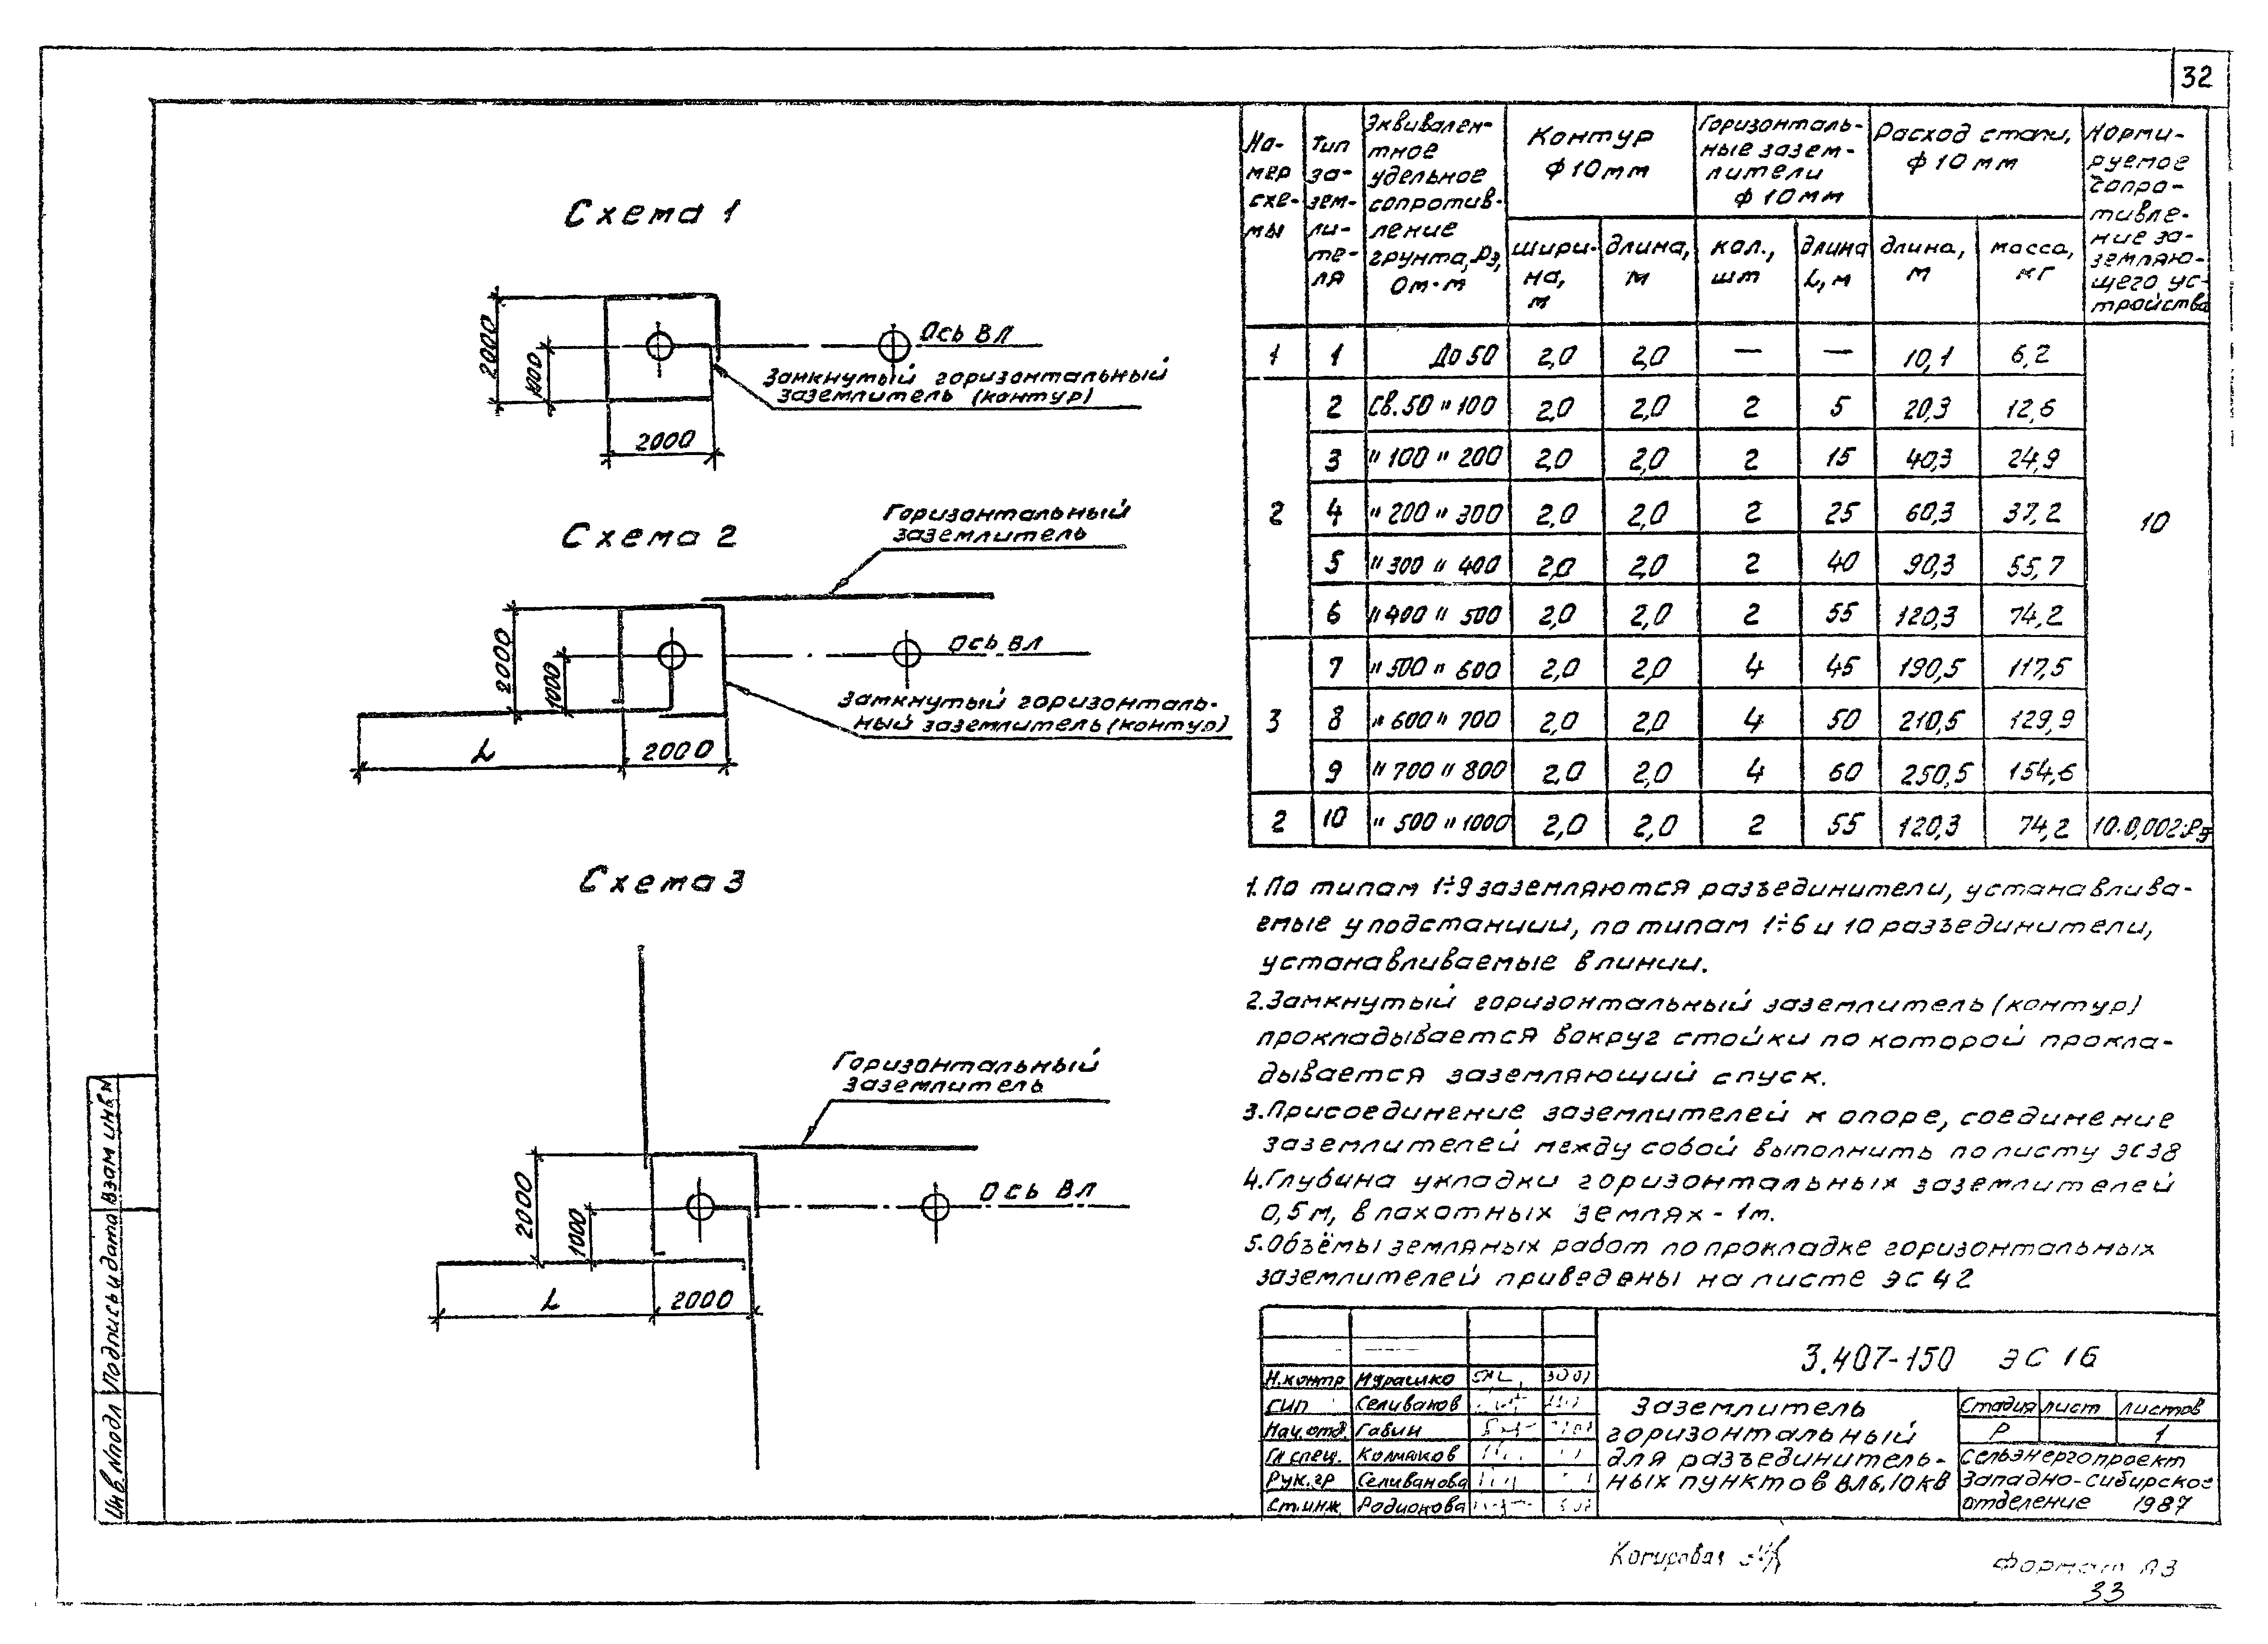 32
Схема 1
2000
1000
Ось ВЛ
Замкнутый горизонтальный
заземлитель (контур)
2000
Схема 2
Горизонтальный
заземлитель
2000
1000
Ось ВЛ
Замкнутый горизонталь-
ный заземлитель (контур)
L
2000
Схема 3
Горизонтальный
заземлитель
2000
1000
Ось ВЛ
L
2000
На-
мер
схе-
мы
Тип
за-
зем-
ли-
те-
ля
Эквивален-
тное
удельное
сопротив-
ление
грунта, Рэ,
Ом·м
Контур
ф 10мм
Горизонталь-
ные зазем-
лители
ф 10мм
Расход стали,
ф 10мм
Норми-
руемое
сопро-
тивле-
ние за-
земляю-
щего ус-
тройства
шири-
на,
м
длина,
м
кол.,
шт
длина
L, м
длина,
м
масса,
кг
1 1 До 50 2,0 2,0 — — 10,1 6,2
2 Св. 50 " 100 2,0 2,0 2 5 20,3 12,6
3 " 100 " 200 2,0 2,0 2 15 40,3 24,9
2 4 " 200 " 300 2,0 2,0 2 25 60,3 37,2 10
5 " 300 " 400 2,0 2,0 2 40 90,3 55,7
6 " 400 " 500 2,0 2,0 2 55 120,3 74,2
7 " 500 " 600 2,0 2,0 4 45 190,5 117,5
3 8 " 600 " 700 2,0 2,0 4 50 210,5 129,9
9 " 700 " 800 2,0 2,0 4 60 250,5 154,6
2 10 " 500 " 1000 2,0 2,0 2 55 120,3 74,2 10·0,002·Рэ
1. По типам 1÷9 заземляются разъединители, устанавлива-
емые у подстанции, по типам 1÷6 и 10 разъединители,
устанавливаемые в линии.
2. Замкнутый горизонтальный заземлитель (контур)
прокладывается вокруг стойки по которой прокла-
дывается заземляющий спуск.
3. Присоединение заземлителей к опоре, соединение
заземлителей между собой выполнить по листу ЭС38
4. Глубина укладки горизонтальных заземлителей
0,5м, в пахотных землях - 1м.
5. Объёмы земляных работ по прокладке горизонтальных
заземлителей приведены на листе ЭС 42
Взам инв N
Подпись и дата
Инв. N подл
3.407-150 ЭС 16
Н.контр Мурашко
ГИП Селиванов
Нач.отд. Гавин
Гл спец. Колмаков
Рук.гр Селиванова
Ст.инж. Родионова
Заземлитель
горизонтальный
для разъединитель-
ных пунктов ВЛ 6,10кВ
Стадия лист листов
Р 1
Сельэнергопроект
Западно-Сибирское
отделение 1987
Копировал
Формат А3
33